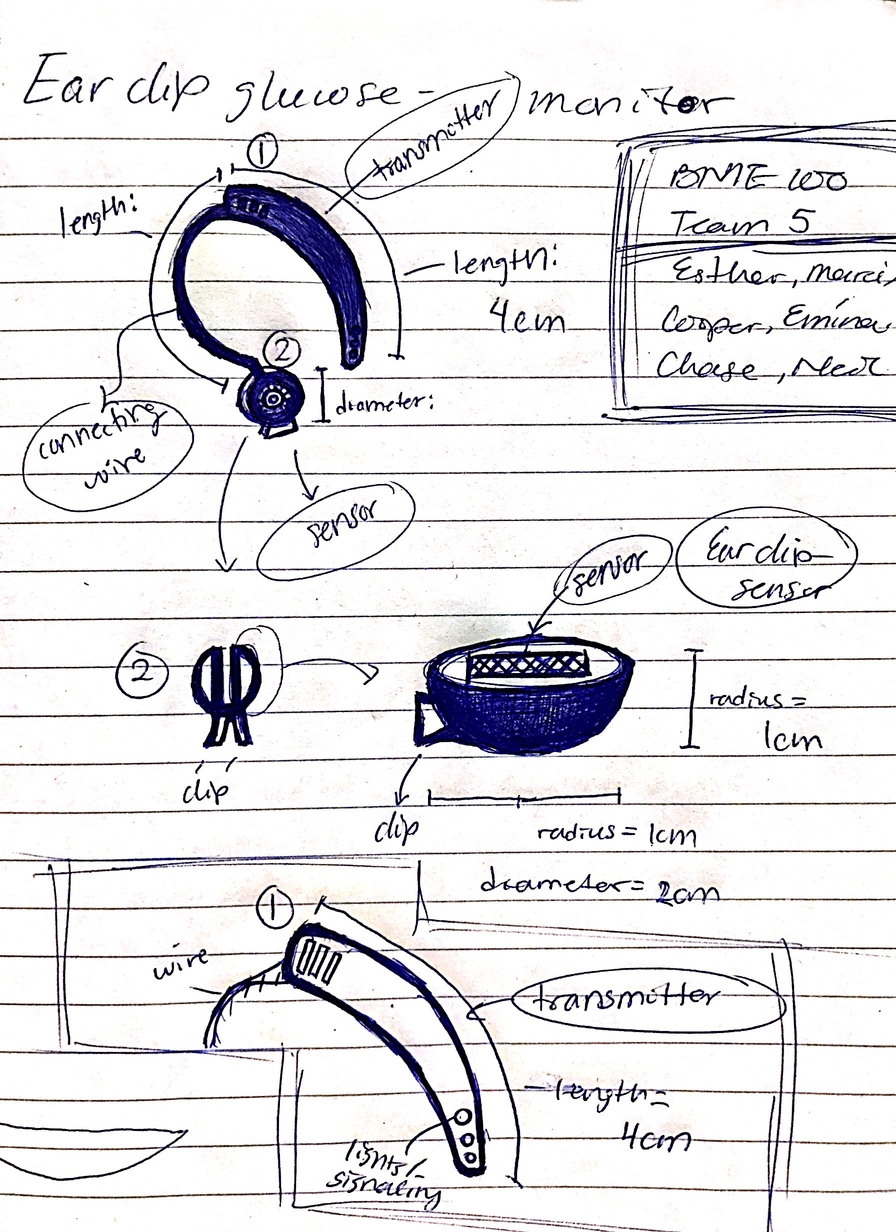 Ear clip glucose - monitor
①
transmitter
BME 100
Team 5
Esther,
Cooper,
Chase,
length:
length:
4cm
②
diameter:
connecting
wire
sensor
sensor
Ear clip
sensor
②
radius =
1cm
clip
clip
radius = 1cm
diameter = 2cm
①
wire
transmitter
length =
4cm
lights/
signaling